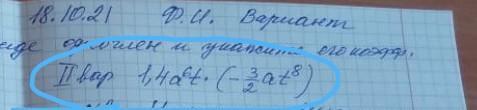 18.10.21 Ф.И. Вариант
одночлен и укажите его коэфф.
II вар 1,4a⁶t · (-3/2 at⁸)